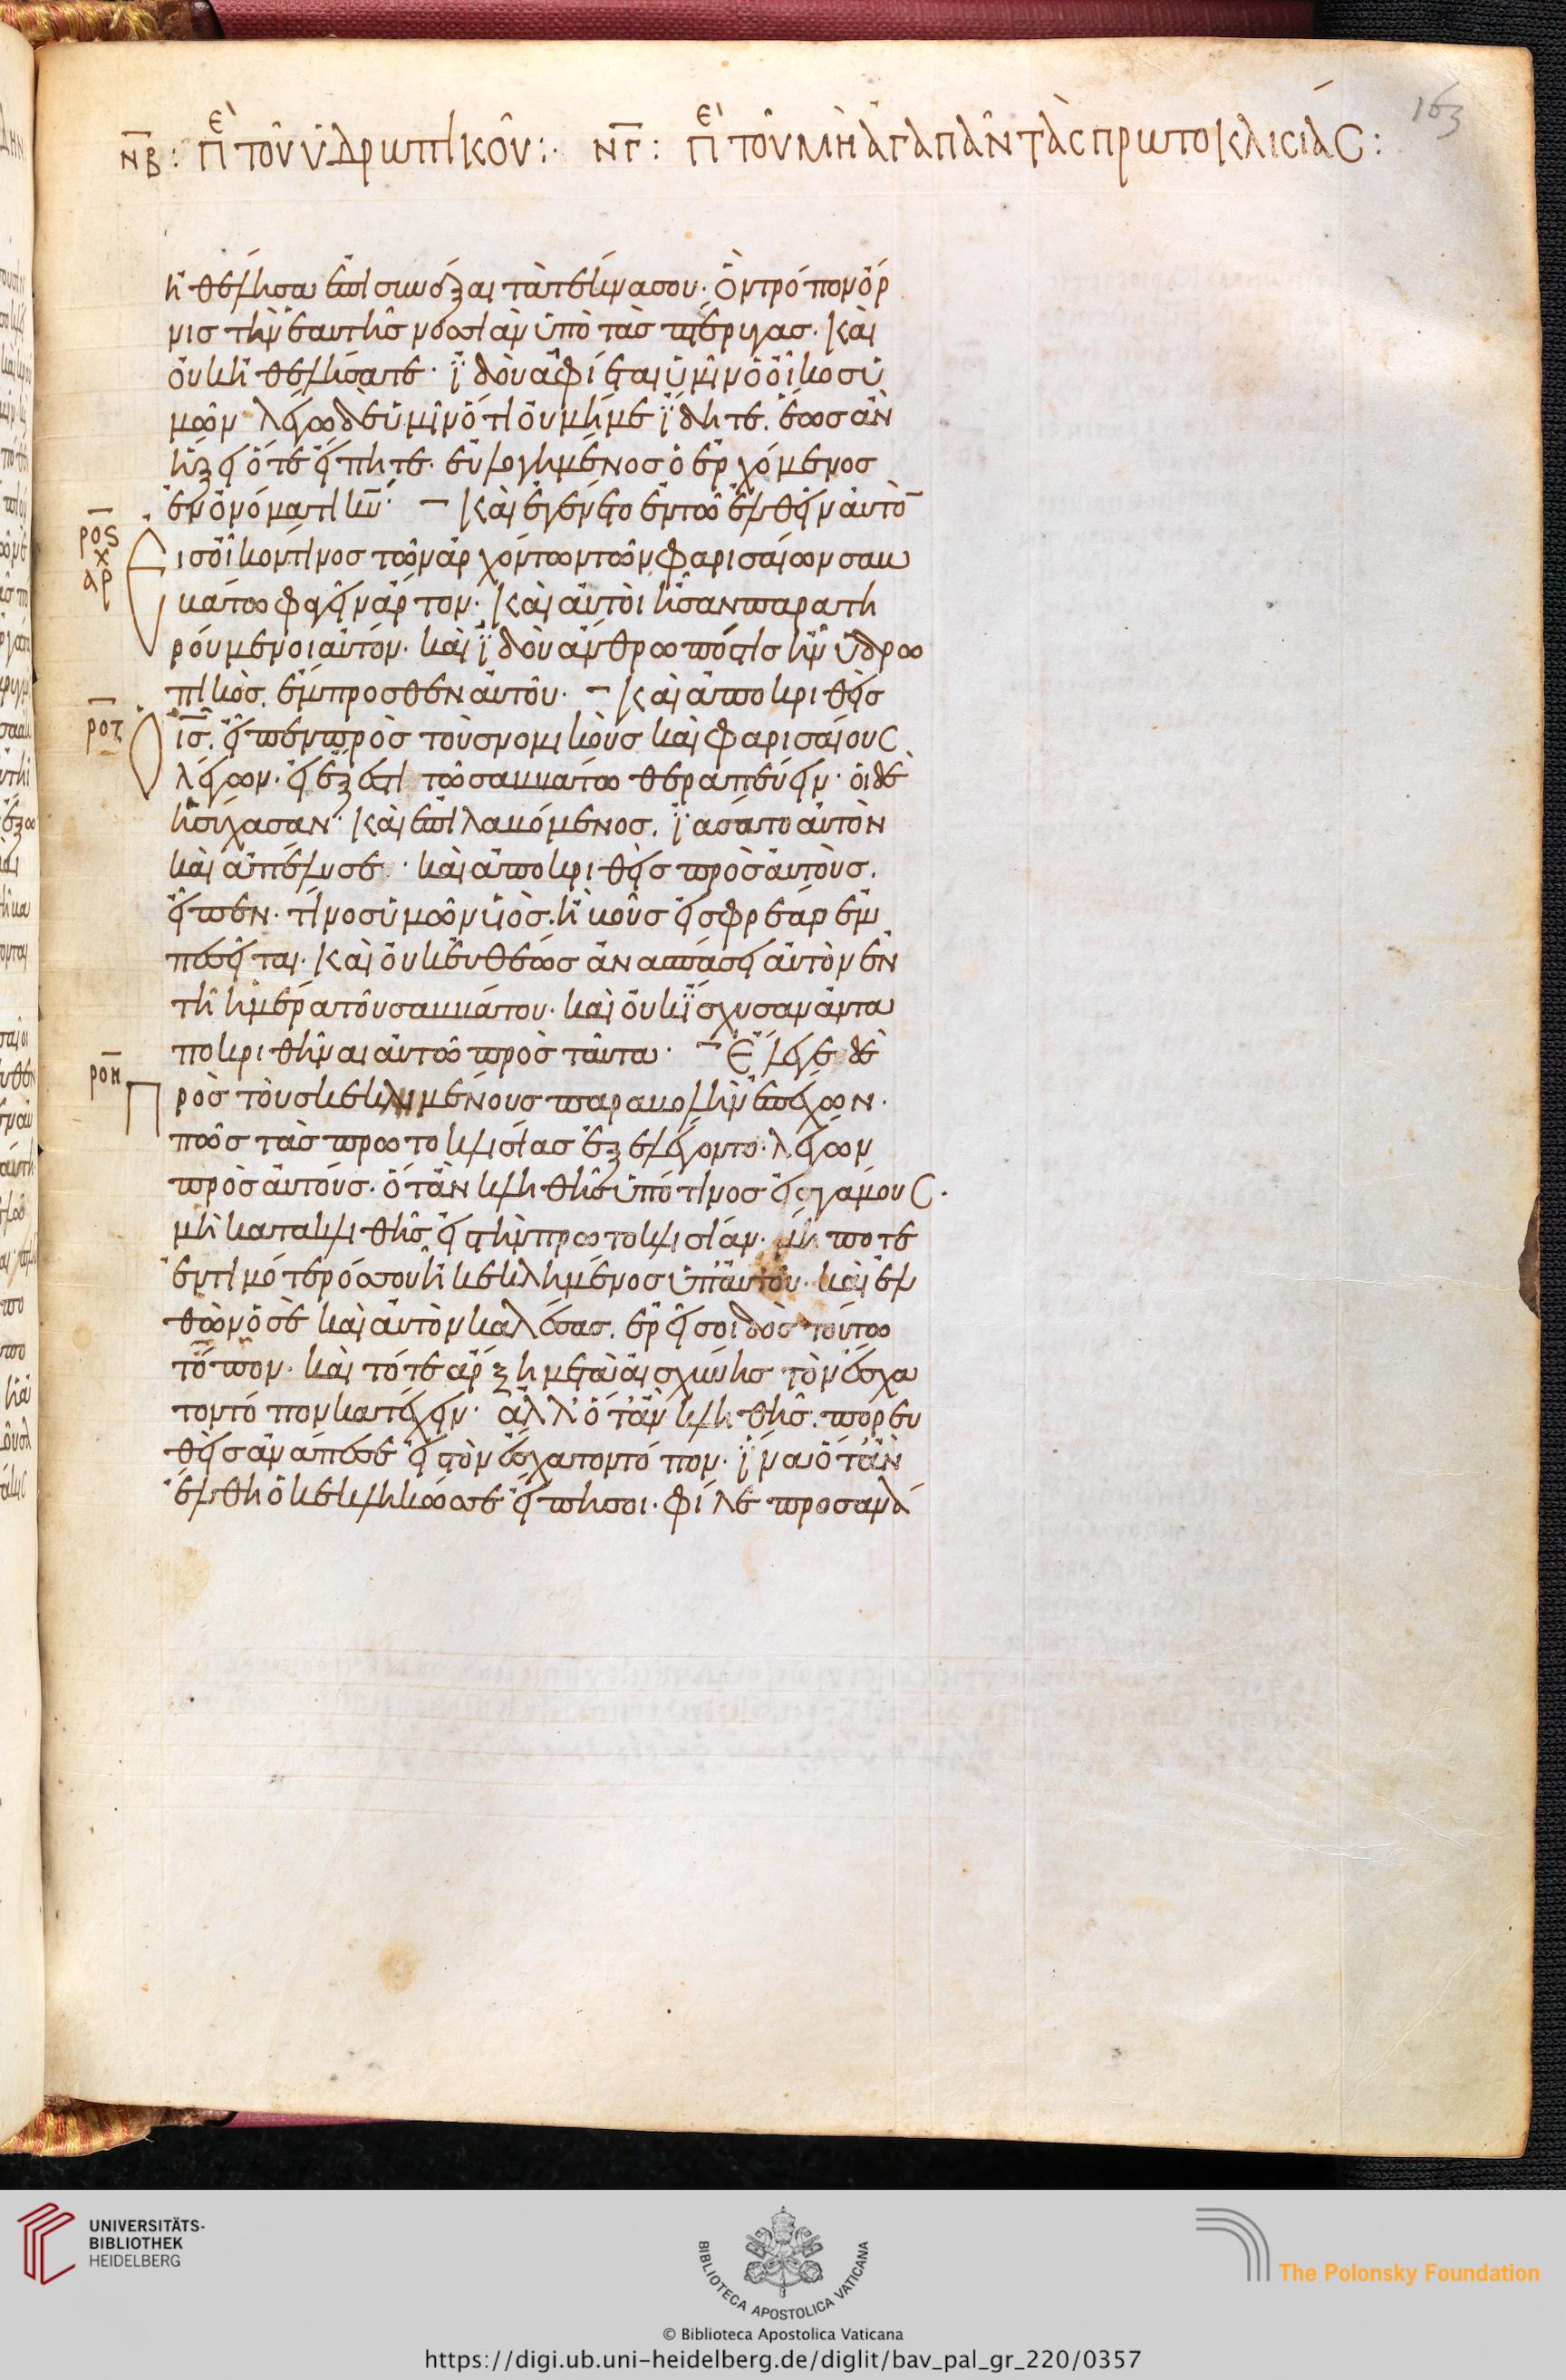 ν̅β̅: πὲ τοῦ ὑδρωπικοῦ:· ν̅γ̅: πὲ τοῦ μὴ ἀγαπᾶν τὰς πρωτοκλισίας:
163
ἠθέλησα ἐπισυνάξαι τὰ τέκνα σου· Ὃν τρόπον ὄρ
νις τὴν ἑαυτῆς νοσιὰν ὑπὸ τὰς πτέρυγας. Καὶ
οὐκ ἠθελήσατε· ἰδοὺ ἀφίεται ὑμῖν ὁ οἶκος ὑ
μῶν λέγω δὲ ὑμῖν ὅτι οὐ μή με ἴδητε. ἕως ἂν
ἥξει ὅτε εἴπητε· εὐλογημένος ὁ ἐρχόμενος
ἐν ὀνόματι κ̅υ̅· Καὶ ἐγένετο ἐν τῶ ἐλθεῖν αὐτὸ̅
ρ̅ο̅ϛ̅ χ αρ Εἰς οἶκόν τινος τῶν ἀρχόντων τῶν φαρισαίων σαβ
βάτω φαγεῖν ἄρτον· Καὶ αὐτοὶ ἦσαν παρατη
ρούμενοι αὐτόν· καὶ ἰδοὺ ἄνθρωπός τις ἦν ὑδρω
πικὸς. ἔμπροσθεν αὐτοῦ· Καὶ ἀποκριθεὶς
ρ̅ο̅ζ̅ Ὁ ι̅ς̅. εἶπεν πρὸς τοὺς νομικοὺς καὶ φαρισαίους
λέγων· εἰ ἔξεστι τῶ σαββάτω θεραπεύειν· οἱ δὲ
ἡσίχασαν· Καὶ ἐπιλαβόμενος. ἰάσατο αὐτὸν
καὶ ἀπέλυσε· καὶ ἀποκριθεὶς πρὸς αὐτοὺς.
εἶπεν· τίνος ὑμῶν υἱὸς. ἢ βοῦς εἰς φρέαρ ἐμ
πεσεῖται· Καὶ οὐκ εὐθέως ἀνασπάσει αὐτὸν ἐν
τῆ ἡμέρα τοῦ σαββάτου· καὶ οὐκ ἴσχυσαν ἀντα
ποκριθῆναι αὐτῶ πρὸς ταῦτα· Ἔλεγε δὲ
ρ̅ο̅η̅ Πρὸς τοὺς κεκλημένους παραβολὴν ἐπέχων·
πῶς τὰς πρωτοκλισίας ἐξελέγοντο· λέγων
πρὸς αὐτούς· ὅταν κληθῆς ὑπό τινος εἰς γάμους·
μὴ κατακλιθῆς εἰς τὴν πρωτοκλισίαν· μήποτε
ἐντιμότερός σου ἦ κεκλημένος ὑπ' αὐτοῦ· καὶ ἐλ
θὼν ὁ σὲ καὶ αὐτὸν καλέσας. ἐρεῖ σοι δὸς τούτω
τόπον· καὶ τότε ἄρξη μετὰ αἰσχύνης τὸν ἔσχα
τον τόπον κατέχειν· ἀλλ' ὅταν κληθῆς. πορευ
θεὶς ἀνάπεσε εἰς τὸν ἔσχατον τόπον· ἵνα ὅταν
ἔλθη ὁ κεκληκώς σε εἴπη σοι· φίλε προσανά
UNIVERSITÄTS-
BIBLIOTHEK
HEIDELBERG
BIBLIOTECA APOSTOLICA VATICANA
The Polonsky Foundation
© Biblioteca Apostolica Vaticana
https://digi.ub.uni-heidelberg.de/diglit/bav_pal_gr_220/0357